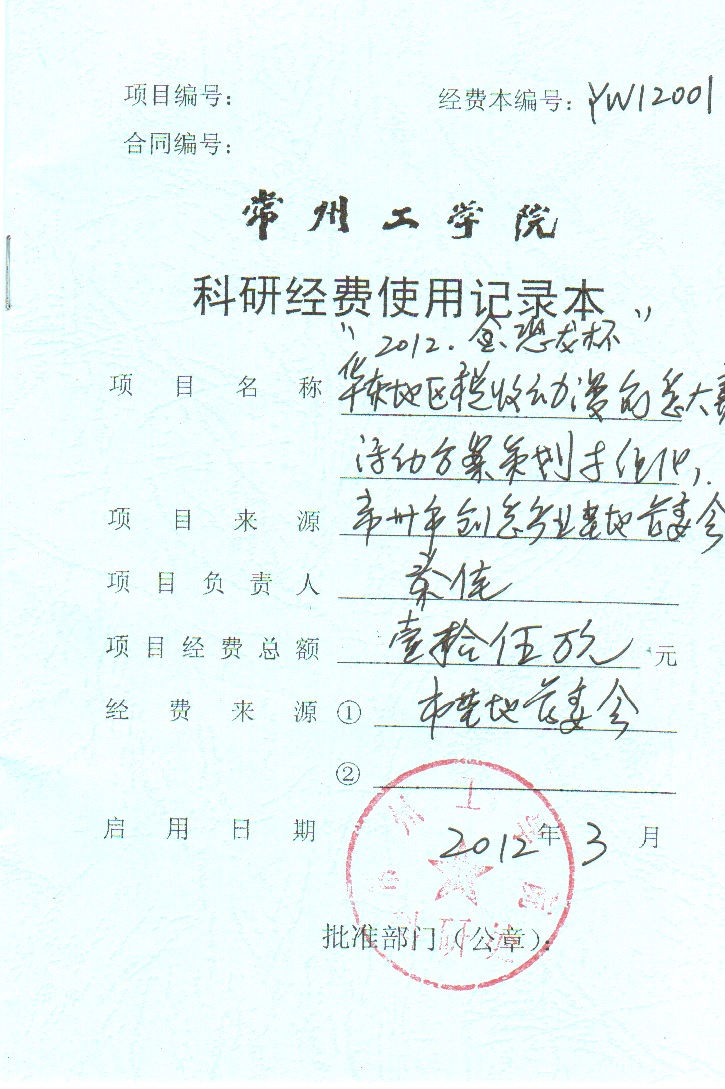 项目编号：
经费本编号：YW12001
合同编号：
常州工学院
科研经费使用记录本
"2012.金恐龙杯"
项目名称 华东地区税收动漫创意大赛
活动方案策划与组织
项目来源 常州市创意产业基地管委会
项目负责人 佳
项目经费总额 壹拾伍万元 元
经费来源① 市基地管委会
②
启用日期 2012年3月
批准部门（公章）：
州工学院
科研处